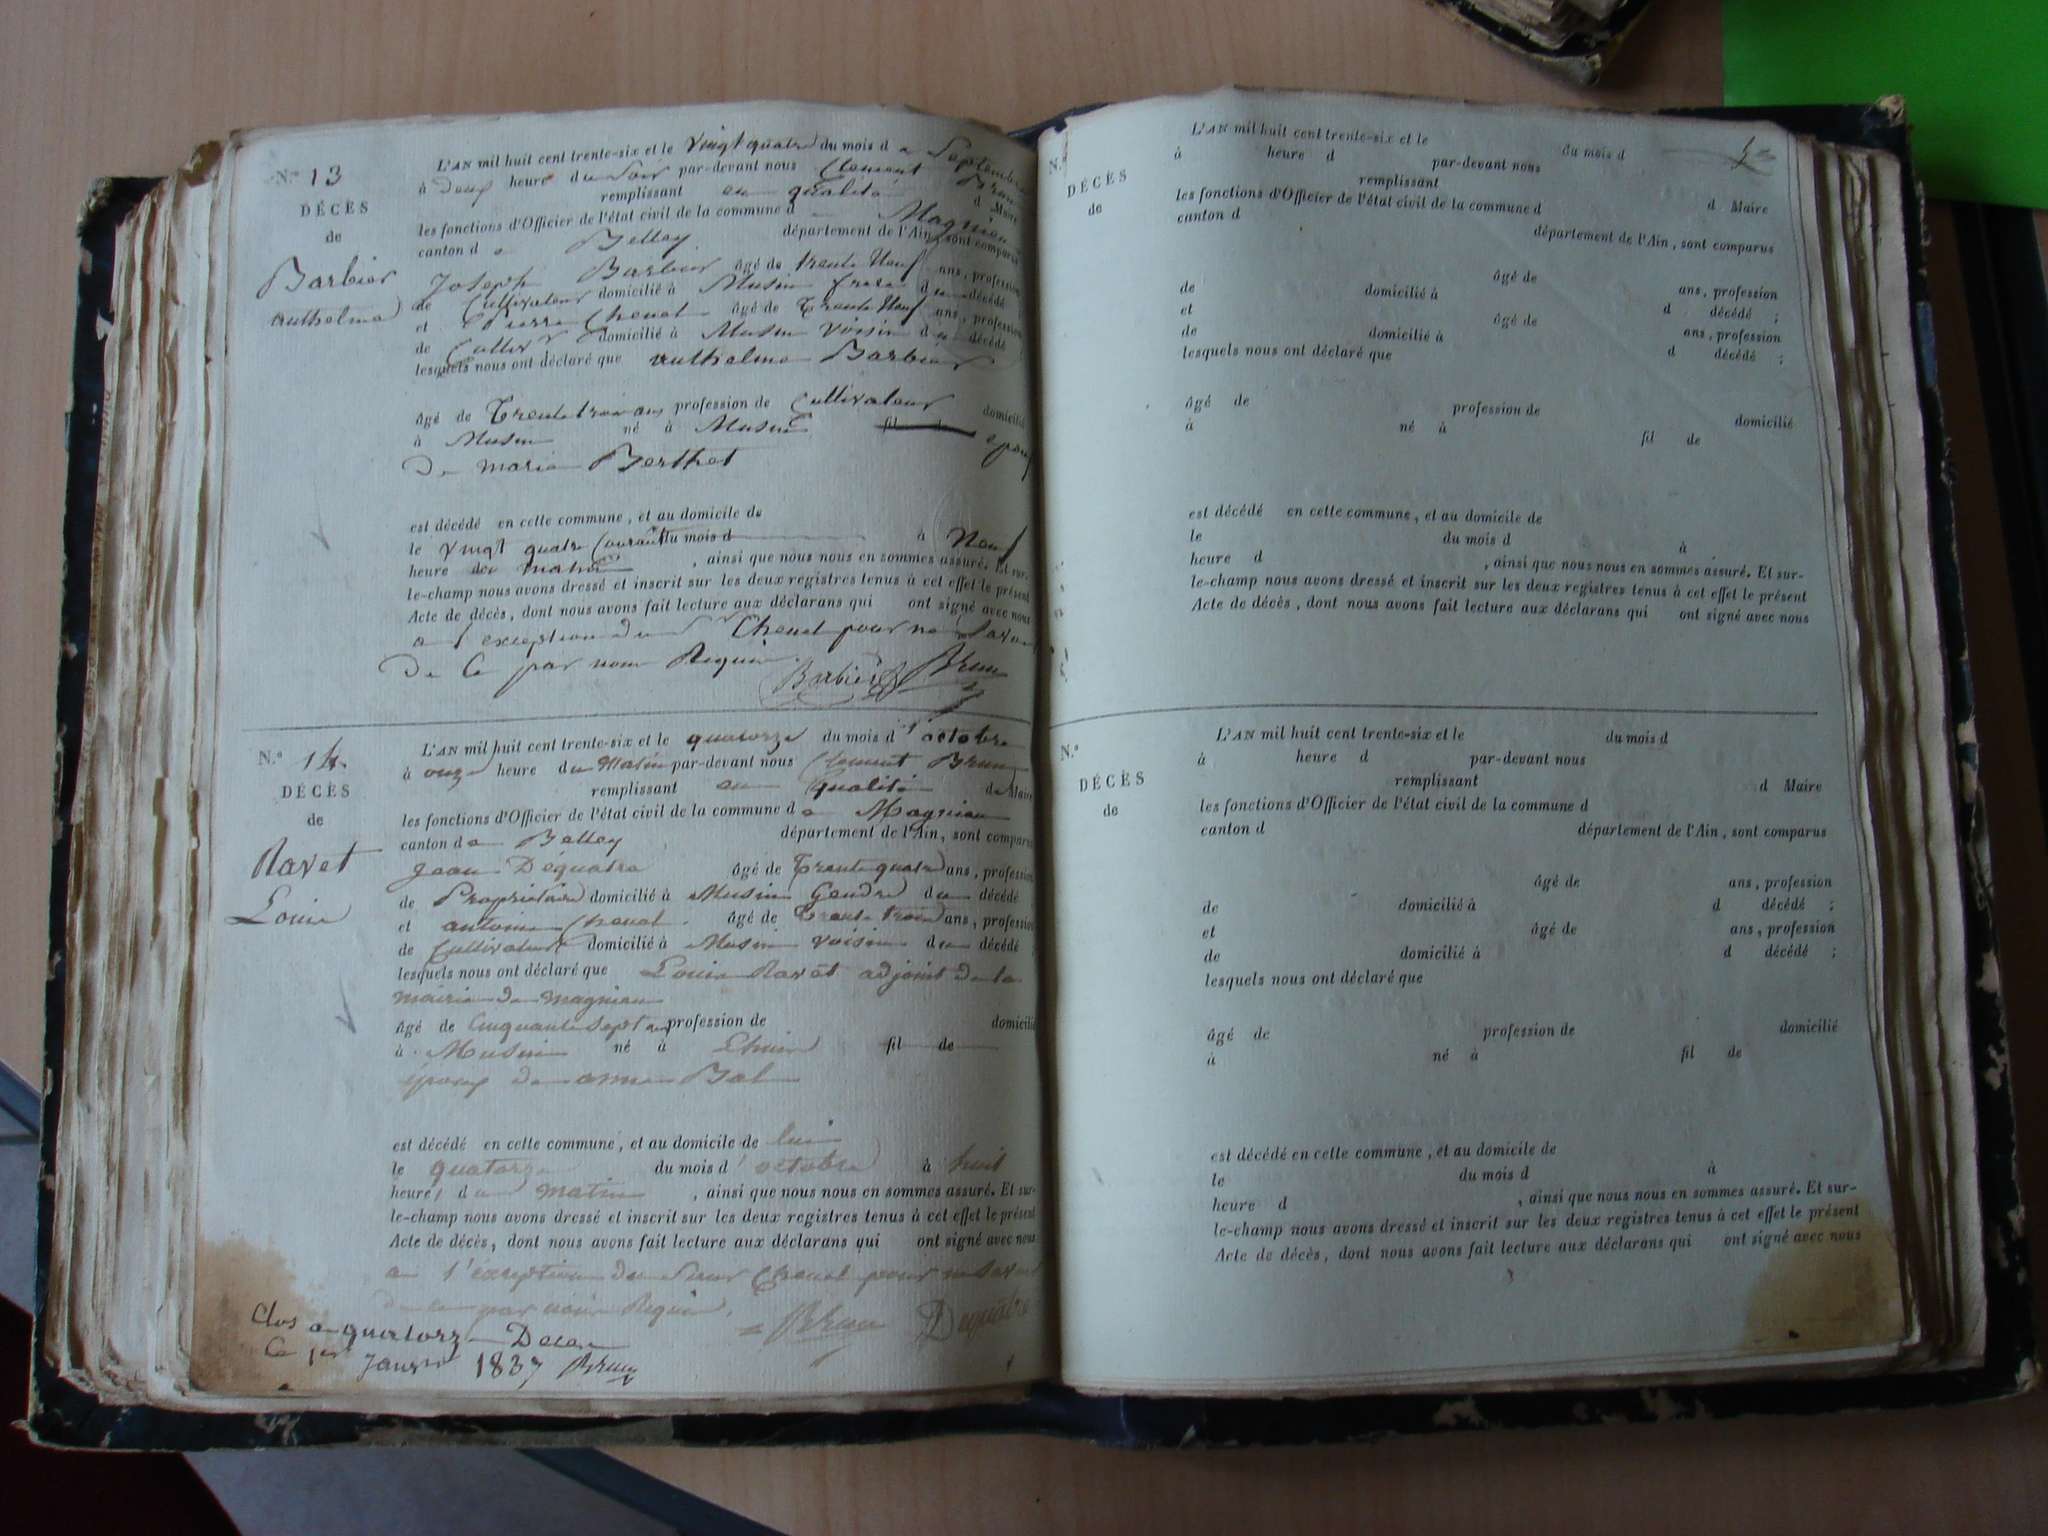 N.º 13
DÉCÈS
de
Barbier
anthelme
L'AN mil huit cent trente-six et le vingt quatre du mois d e Septembre
à deux heure du Soir par-devant nous Clement Brun
remplissant en qualité d Maire
les fonctions d'Officier de l'état civil de la commune d e Magnieu
canton d e Belley département de l'Ain, sont comparus
Joseph Barbier âgé de trente Neuf ans, profession
de Cultivateur domicilié à Musin frere du décédé
et Pierre Chenal âgé de Trente Neuf ans, profession
de Cultivr domicilié à Musin voisin du décédé
lesquels nous ont déclaré que anthelme Barbier
âgé de Trente trois ans profession de Cultivateur domicilié
à Musin né à Musin fil de époux
De marie Berthet
est décédé en cette commune, et au domicile de
le vingt quatre Courant du mois d à Neuf
heure du matin , ainsi que nous nous en sommes assuré. Et sur-
le-champ nous avons dressé et inscrit sur les deux registres tenus à cet effet le présent
Acte de décès, dont nous avons fait lecture aux déclarans qui ont signé avec nous
a l'exception du Sr Chenal pour ne Savoir
De Ce par nous Requis. Barbier Brun
N.º 14.
DÉCÈS
de
Ravet
Louis
L'AN mil huit cent trente-six et le quatorze du mois d'octobre
à onze heure du Matin par-devant nous Clement Brun
remplissant en Qualité de Maire
les fonctions d'Officier de l'état civil de la commune d e Magnieu
canton d e Belley département de l'Ain, sont comparus
Jean Dequatre âgé de Trente quatre ans, profession
de Propriétaire domicilié à Musin Gendre du décédé
et antoine Chenal âgé de Trente trois ans, profession
de Cultivateur domicilié à Musin voisin du décédé
lesquels nous ont déclaré que Louis Ravet adjoint de la
mairie de magnieu
âgé de Cinquante Sept ans profession de domicilié
à Musin né à fil de
époux de anne Bal
est décédé en cette commune, et au domicile de lui
le quatorze du mois d'octobre à huit
heure, du matin , ainsi que nous nous en sommes assuré. Et sur-
le-champ nous avons dressé et inscrit sur les deux registres tenus à cet effet le présent
Acte de décès, dont nous avons fait lecture aux déclarans qui ont signé avec nous
a l'exception du Sieur Chenal pour ne Savoir
de ce par nous Requis. Brun Dequatre
Clos a quatorze Deces
Ce 1er Janvier 1837 Brun
N.º
DÉCÈS
de
L'AN mil huit cent trente-six et le du mois d
à heure d par-devant nous
remplissant d Maire
les fonctions d'Officier de l'état civil de la commune d
canton d département de l'Ain, sont comparus
âgé de ans, profession
de domicilié à d décédé ;
et âgé de ans, profession
de domicilié à d décédé ;
lesquels nous ont déclaré que
âgé de profession de domicilié
à né à fil de
est décédé en cette commune, et au domicile de
le du mois d à
heure d , ainsi que nous nous en sommes assuré. Et sur-
le-champ nous avons dressé et inscrit sur les deux registres tenus à cet effet le présent
Acte de décès, dont nous avons fait lecture aux déclarans qui ont signé avec nous
N.º
DÉCÈS
de
L'AN mil huit cent trente-six et le du mois d
à heure d par-devant nous
remplissant d Maire
les fonctions d'Officier de l'état civil de la commune d
canton d département de l'Ain, sont comparus
âgé de ans, profession
de domicilié à d décédé ;
et âgé de ans, profession
de domicilié à d décédé ;
lesquels nous ont déclaré que
âgé de profession de domicilié
à né à fil de
est décédé en cette commune, et au domicile de
le du mois d à
heure d , ainsi que nous nous en sommes assuré. Et sur-
le-champ nous avons dressé et inscrit sur les deux registres tenus à cet effet le présent
Acte de décès, dont nous avons fait lecture aux déclarans qui ont signé avec nous